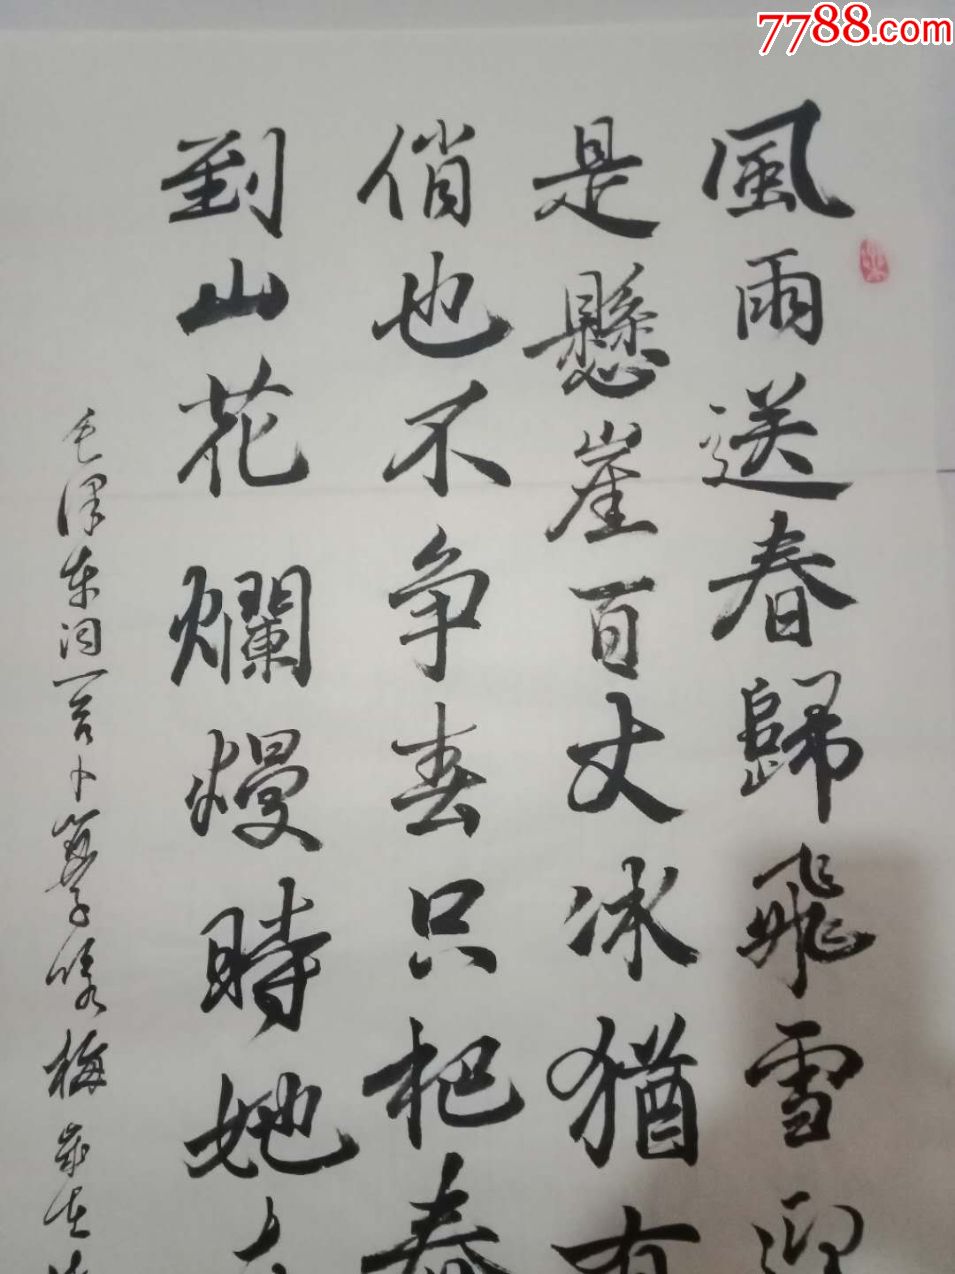 7788.com
風雨送春歸飛雪迎
是懸崖百丈冰猶有
俏也不争春只把春
到山花爛熳時她在
毛泽东词一首卜算子咏梅歲在